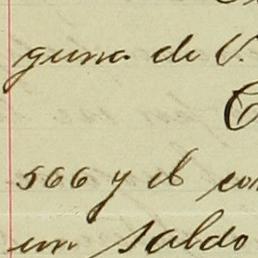 guna de V.
C
566 y el con
un saldo